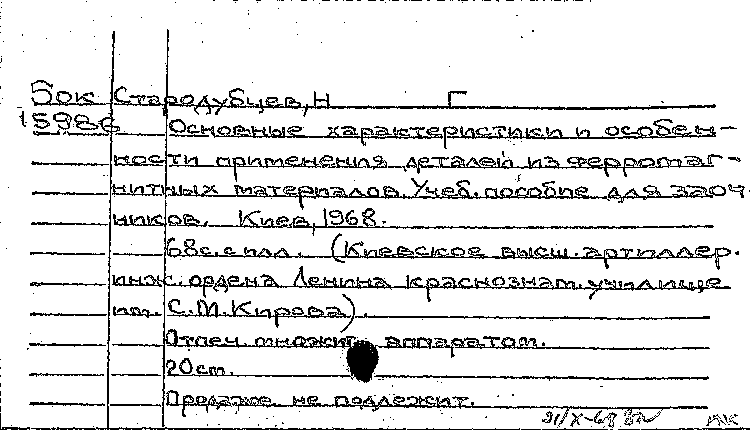 Бок Стародубцев, Н Г
15986 Основные характеристики и особен-
ности применения деталей из ферромаг-
нитных материалов. Учеб. пособие для заоч-
ников. Киев, 1968.
68с. с илл. (Киевское высш. артиллер.
инж. ордена Ленина краснознам. училище
им. С.М. Кирова).
Отпеч. множит. аппаратом.
20см.
Продаже не подлежит.